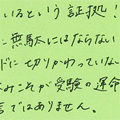 いるという証拠!
に無駄にはならない
ドに切りかわっていな
みこそが受験の運命
言ではありません。